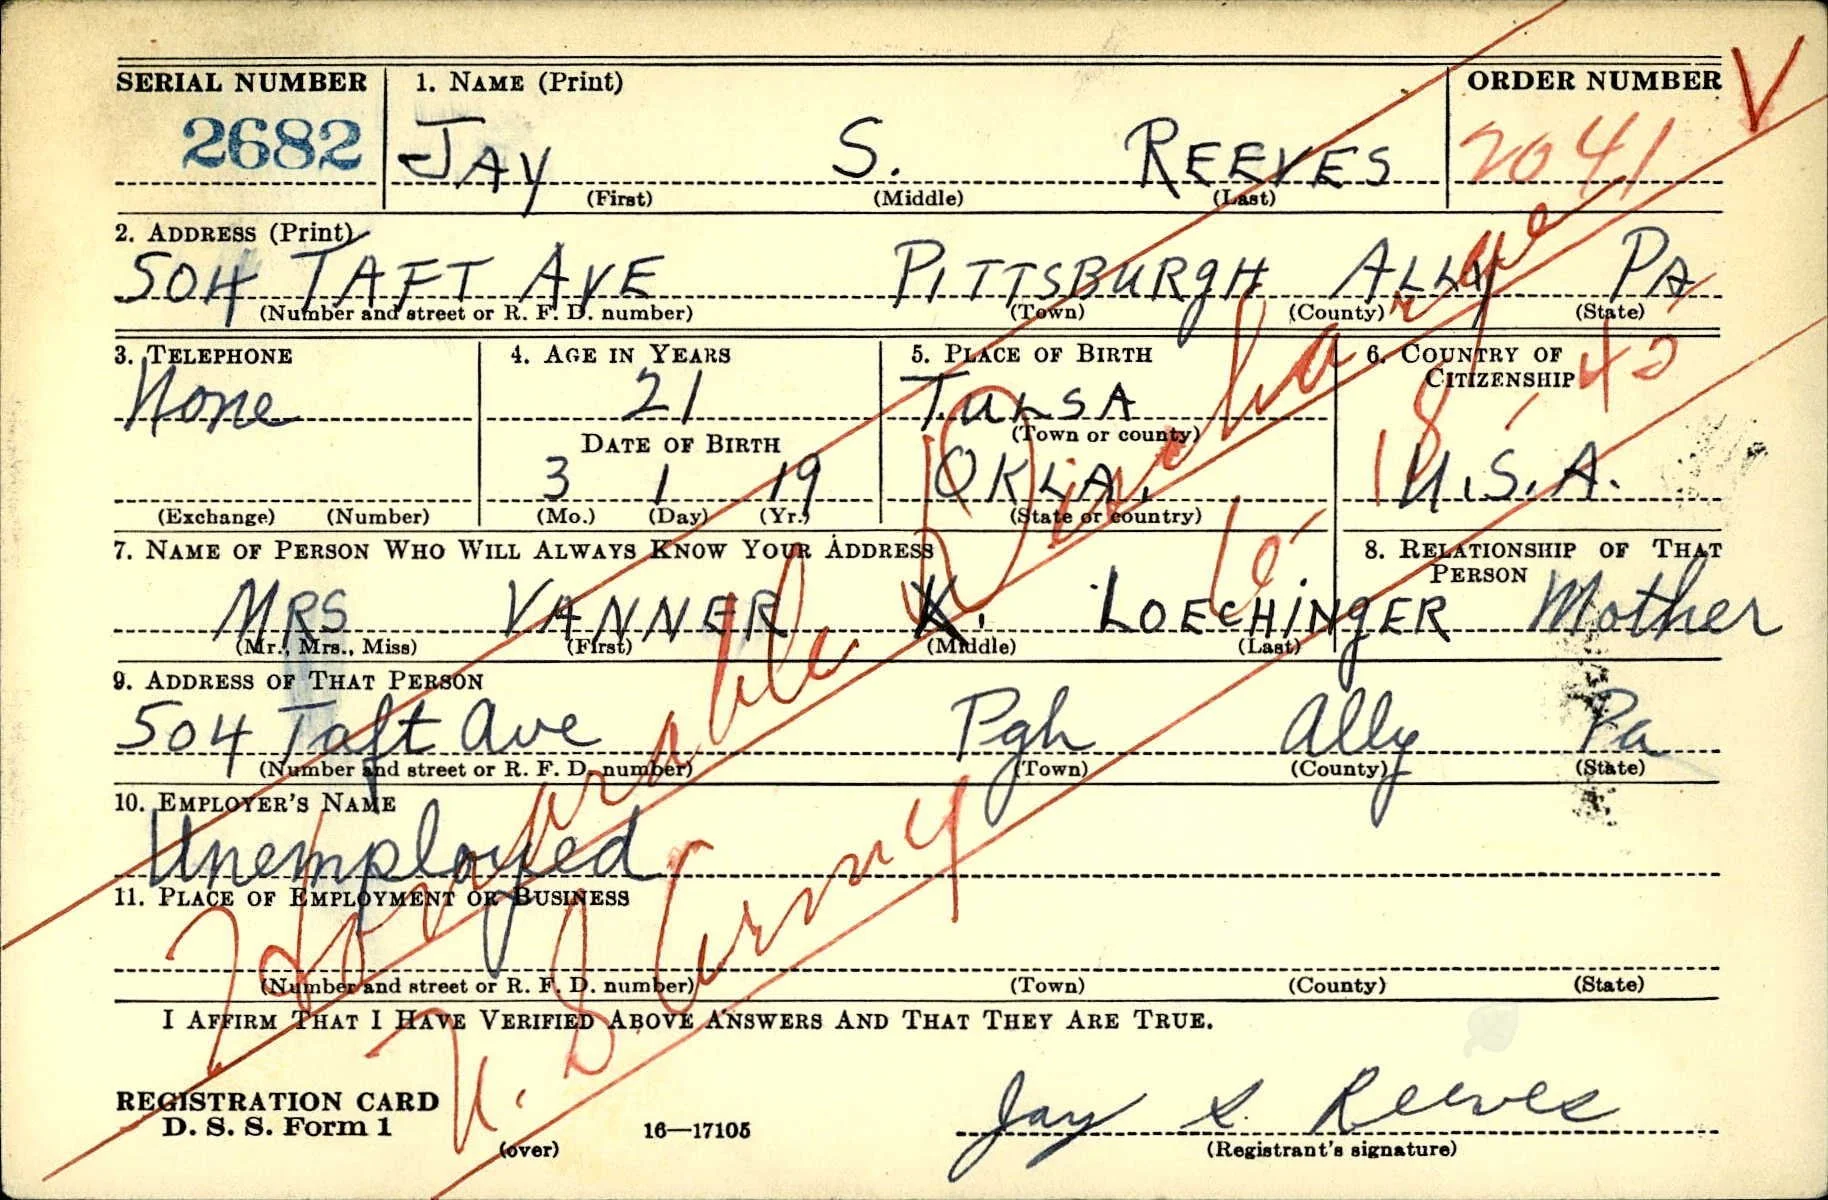 SERIAL NUMBER 1. NAME (Print) ORDER NUMBER V
2682 JAY S. REEVES 2041
(First) (Middle) (Last)
2. ADDRESS (Print)
504 TAFT AVE PITTSBURGH ALLY PA
(Number and street or R. F. D. number) (Town) (County) (State)
3. TELEPHONE 4. AGE IN YEARS 5. PLACE OF BIRTH 6. COUNTRY OF
CITIZENSHIP
None 21 TULSA
(Town or county)
DATE OF BIRTH
3 1 19 OKLA. U.S.A.
(Exchange) (Number) (Mo.) (Day) (Yr.) (State or country)
7. NAME OF PERSON WHO WILL ALWAYS KNOW YOUR ADDRESS 8. RELATIONSHIP OF THAT
PERSON
MRS VANNER LOECHINGER Mother
(Mr., Mrs., Miss) (First) (Middle) (Last)
9. ADDRESS OF THAT PERSON
504 Taft Ave Pgh Ally Pa
(Number and street or R. F. D. number) (Town) (County) (State)
10. EMPLOYER'S NAME
Unemployed
11. PLACE OF EMPLOYMENT OR BUSINESS
(Number and street or R. F. D. number) (Town) (County) (State)
I AFFIRM THAT I HAVE VERIFIED ABOVE ANSWERS AND THAT THEY ARE TRUE.
REGISTRATION CARD
D. S. S. Form 1 16—17105 Jay S. Reeves
(over) (Registrant's signature)
Honorable Discharge
U. S Army